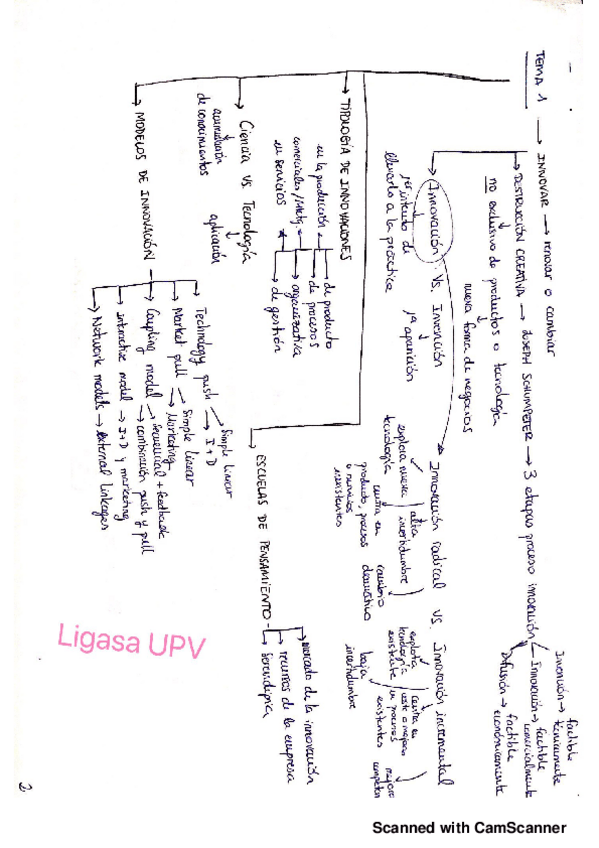 TEMA 1 → INNOVAR → renovar o cambiar
DESTRUCCIÓN CREATIVA → JOSEPH SCHUMPETER → 3 etapas proceso innovación
no exclusivo de productos o tecnología
nueva forma de negocios
Invención → factible técnicamente
Innovación → factible comercialmente
Difusión → factible económicamente
Innovación vs. Invención
1er intento de llevarlo a la práctica
1ª aparición
Innovación radical vs. Innovación incremental
explora nueva tecnología
alta incertidumbre
centra en productos, procesos o servicios
cambio
explota tecnología existente
centra en
en procesos existentes
baja incertidumbre
TIPOLOGÍA DE INNOVACIONES
en la producción
comerciales/mktg.
en servicios
de producto
de procesos
organizativa
de gestión
Ciencia vs. Tecnología
acumulación de conocimientos
aplicación
MODELOS DE INNOVACIÓN
Technology push → simple linear
→ I+D
Market pull → simple linear
→ Marketing
Coupling model → secuencial + feedback
→ combinación push y pull
interactive model → I+D y marketing
Network models → external linkages
ESCUELAS DE PENSAMIENTO
mercado de la innovación
recursos de la empresa
Serendipia
Ligasa UPV
2
Scanned with CamScanner